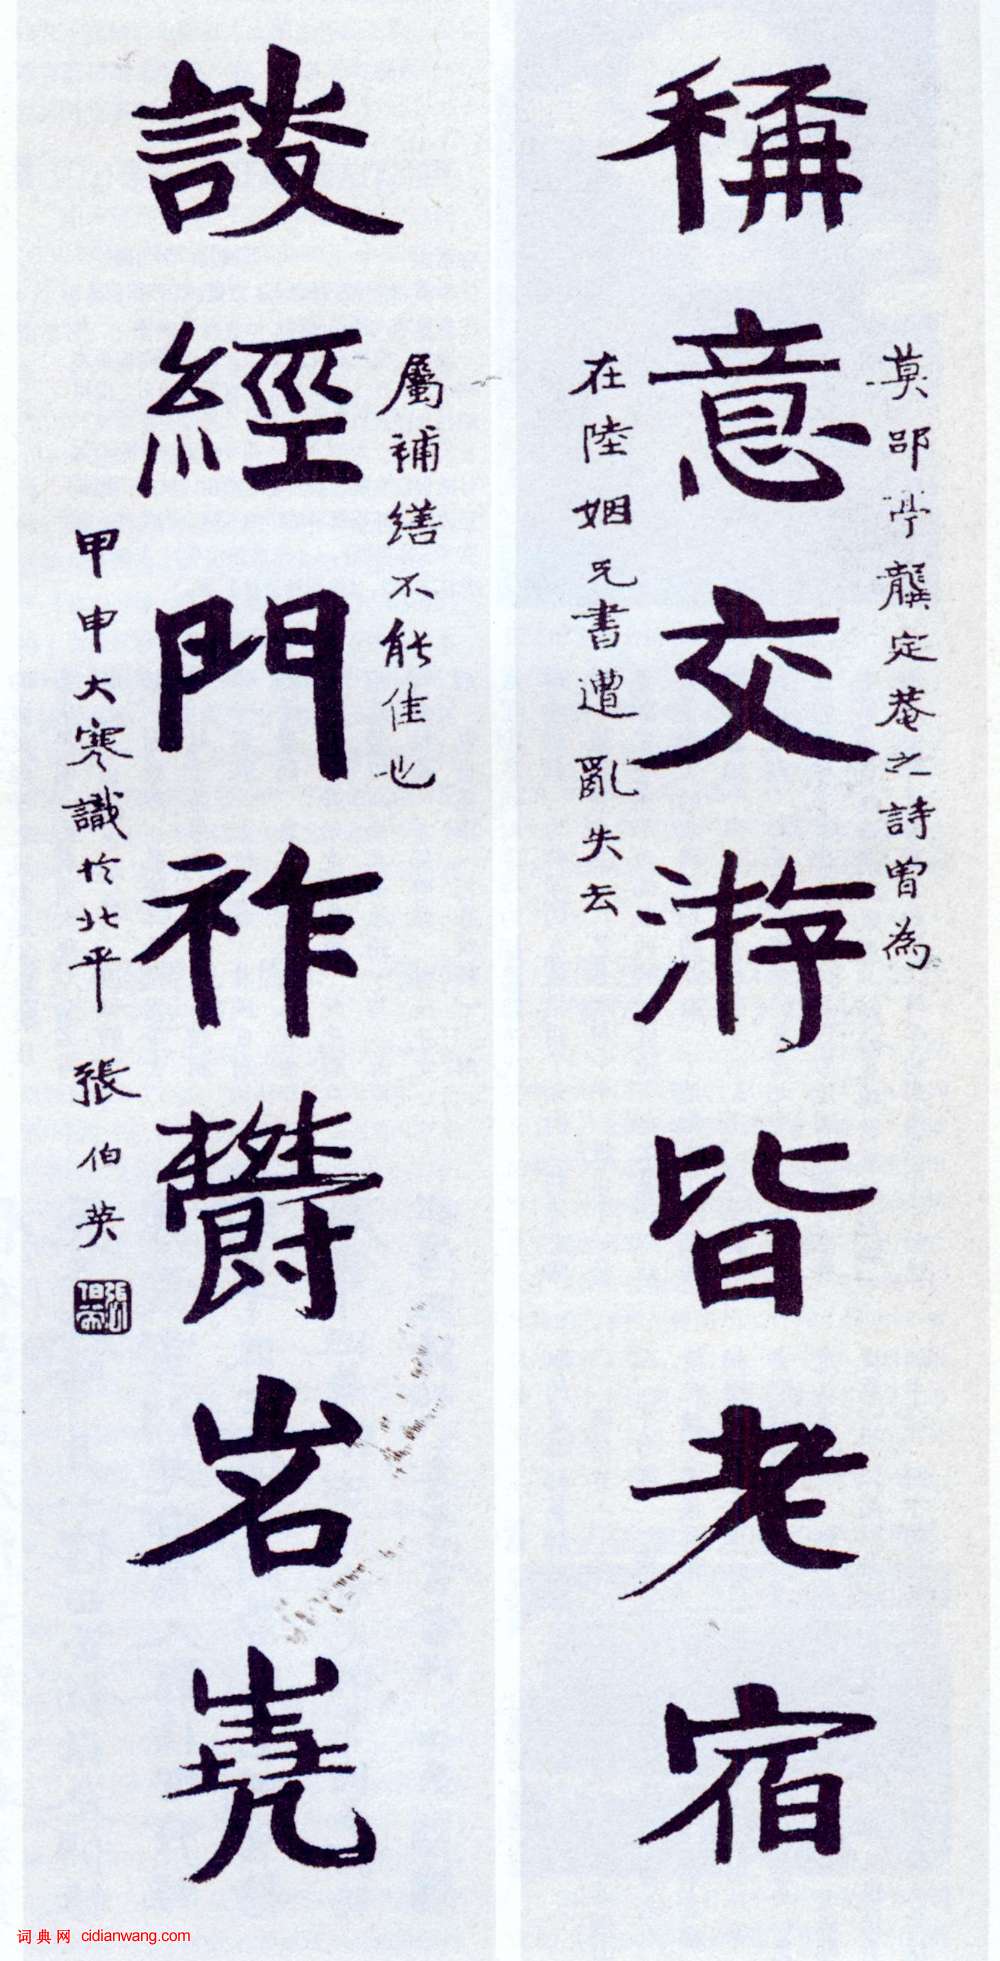 稱意交游皆老宿
莫郘亭龔定菴之詩曾為
在陸姻兄書遭亂失去
談經門祚鬱岧嶢
屬補繕不能佳也
甲申大寒識於北平 張伯英
張伯英
词典网 cidianwang.com